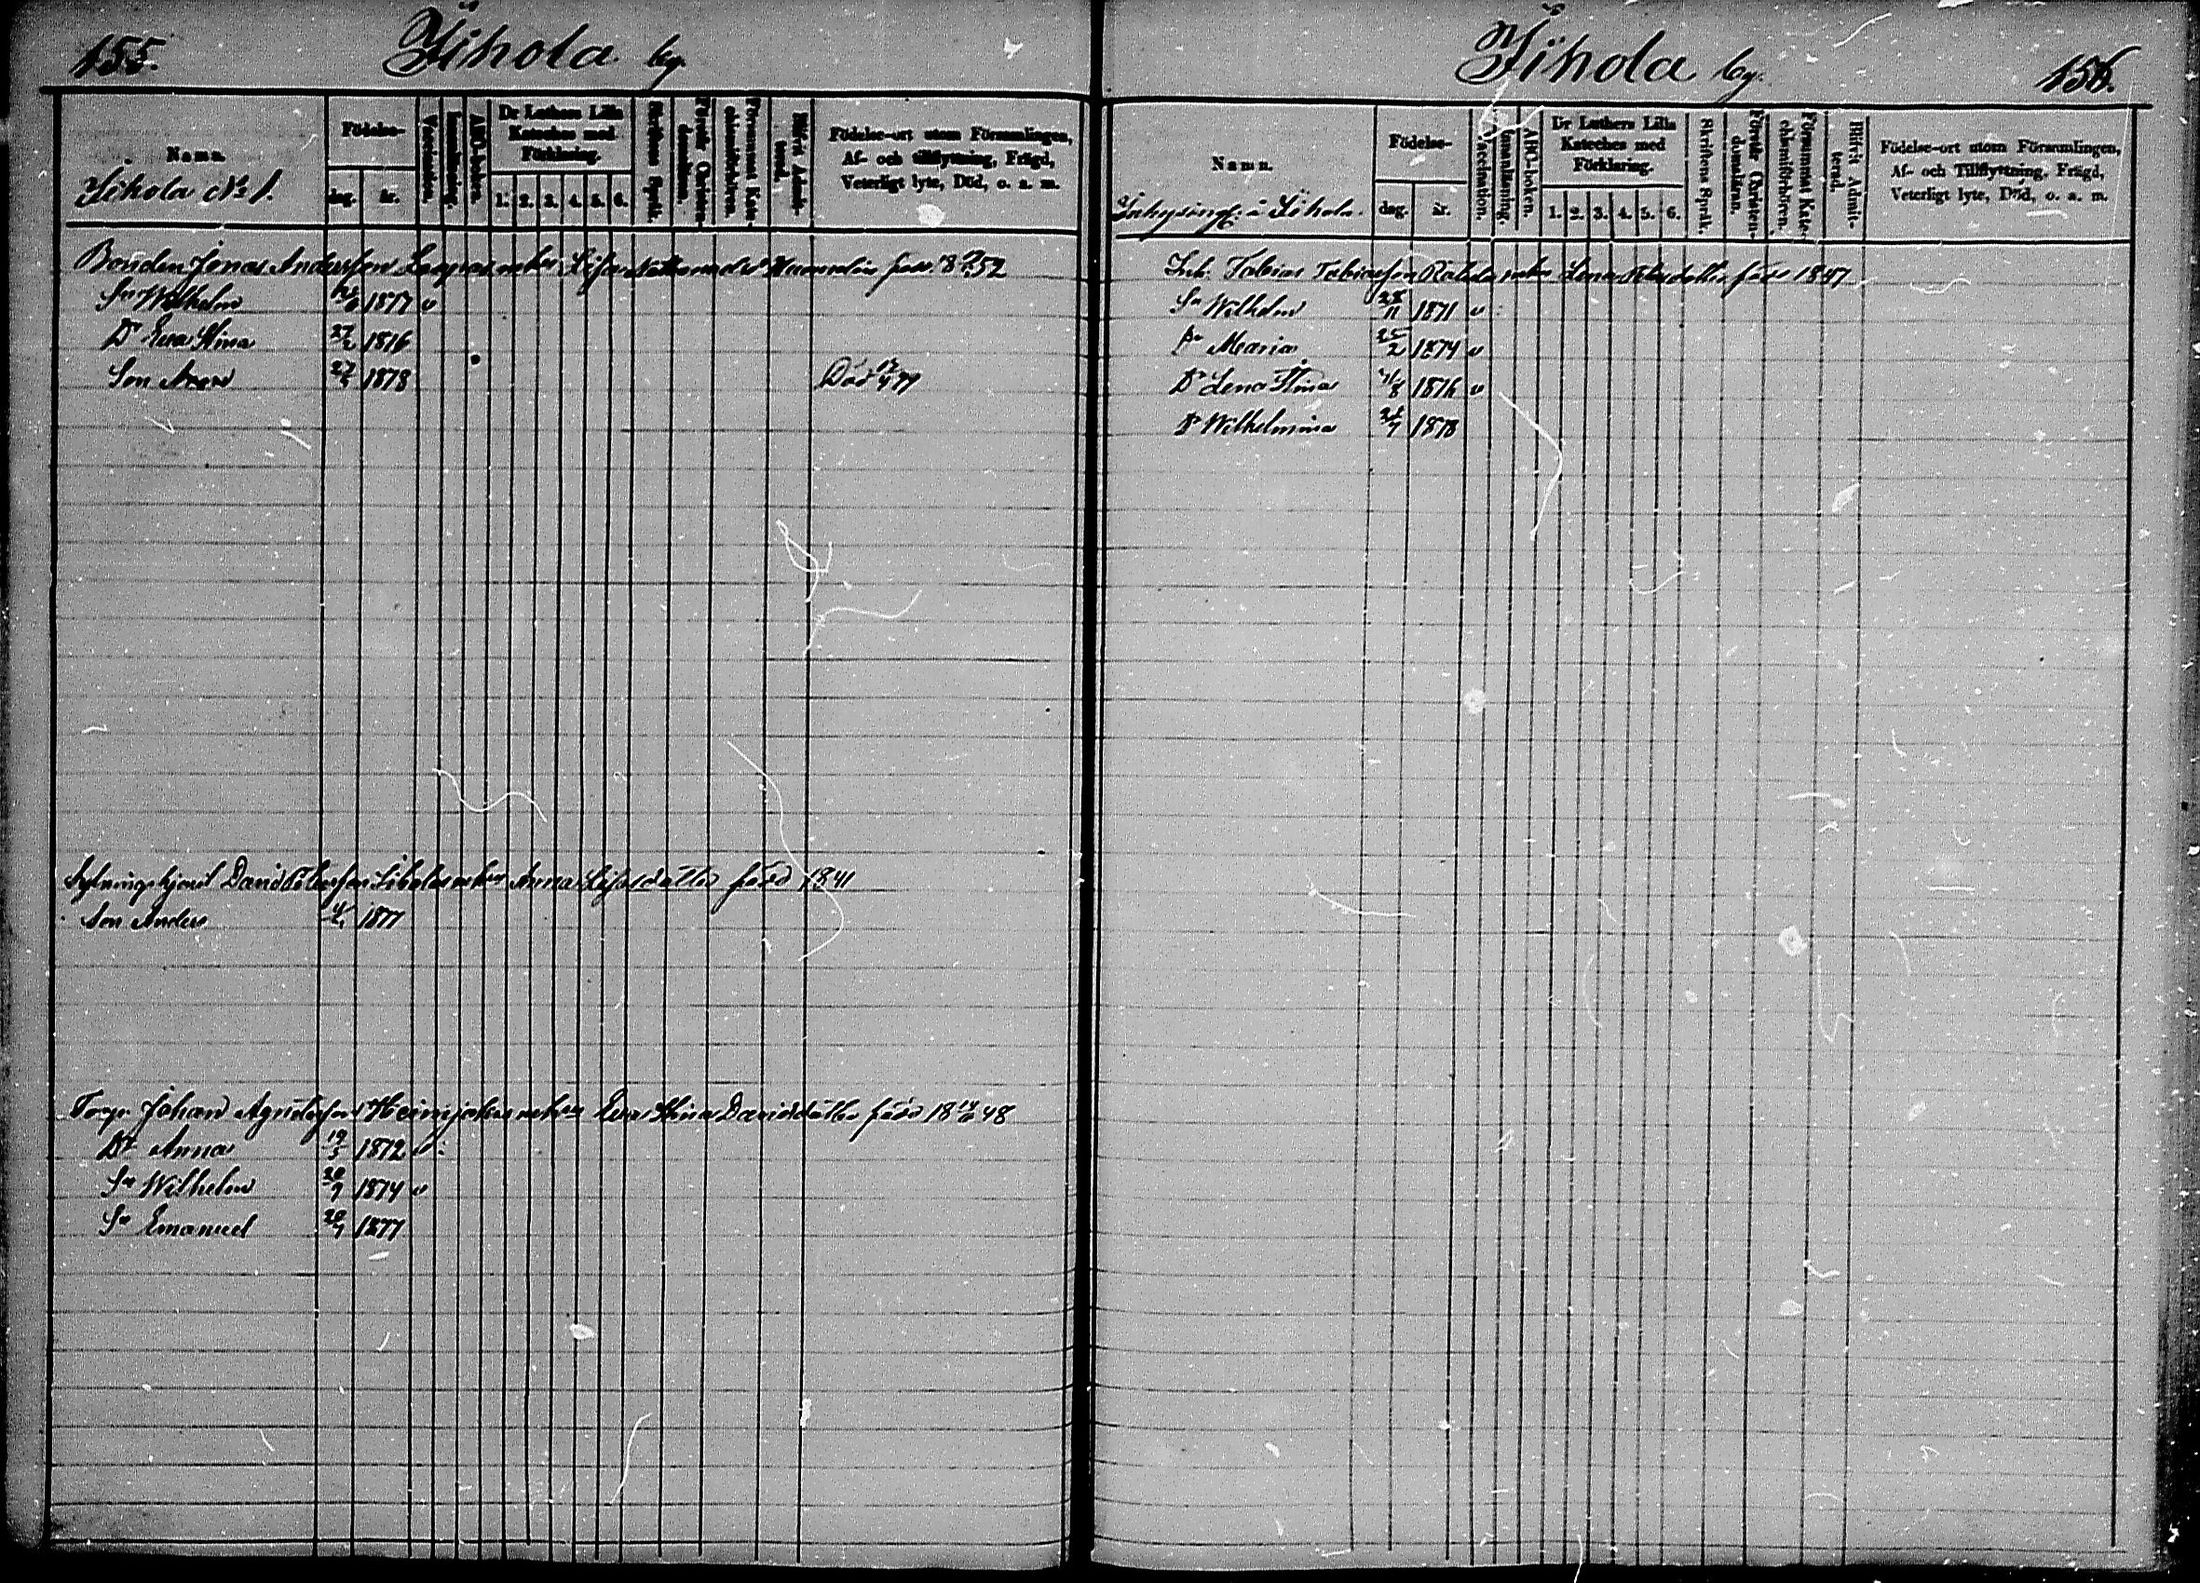 155.
Jihola by.
Namn.
Födelse-
dag.
år.
Vaccination.
Innanläsning.
ABC-boken.
Dr Luthers Lilla
Kateches med
Förklaring.
1. 2. 3. 4. 5. 6.
Skriftens Språk.
Förstår Christen-
domslära.
Försummat Kate-
chismiförhören.
Blifvit Admit-
terad.
Födelse-ort utom Församlingen,
Af- och tillflyttning, Frägd,
Veterligt lyte, Död, o. a. m.
Jihola No 1.
Bonden Jonas Andersson
Sn Wilhelm 1877 v
Dr Eva Stina 27/2 1876
Son 27/5 1878 Död 79
David Anna född 1841
Son Anders 1877
Torp. Johan Eva Stina Davidsdotter född 18 48
Dr Anna 19/3 1872 v
Sn Wilhelm 20/9 1874 v
Sn Emanuel 20/7 1877
Jihola by.
156.
Namn.
Födelse-
dag.
år.
Vaccination.
Innanläsning.
ABC-boken.
Dr Luthers Lilla
Kateches med
Förklaring.
1. 2. 3. 4. 5. 6.
Skriftens Språk.
Förstår Christen-
domslära.
Försummat Kate-
chismiförhören.
Blifvit Admit-
terad.
Födelse-ort utom Församlingen,
Af- och Tillflyttning, Frägd,
Veterligt lyte, Död, o. a. m.
Inhysingf: å Jihola.
Inh. Tobias Tobiasson Lena född 1847
Sn Wilhelm 28/11 1871 v
Dr Maria 25/2 1874 v
Dr Lena Stina 1876 v
Dr Wilhelmina 1878